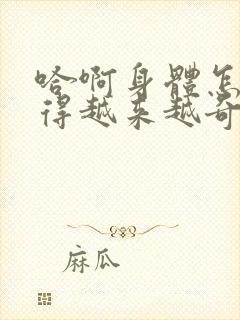 哈啊身體怎
得越来越奇
麻瓜